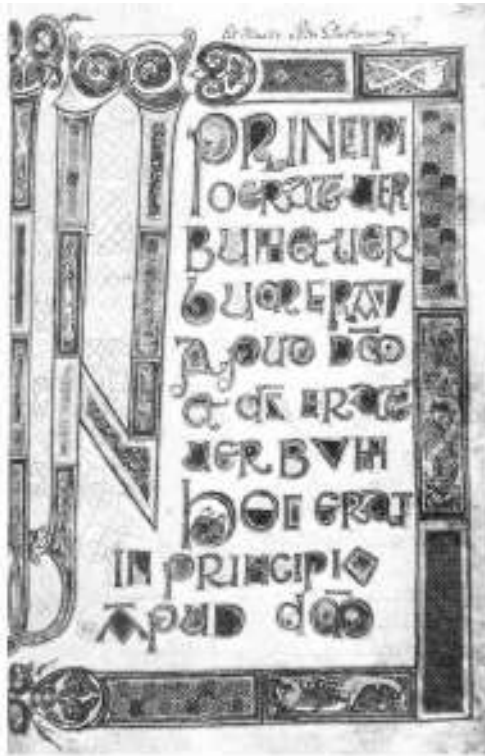 IN PRINCIPI
O ERAT UER
BUM & UER
BUM ERAT
APUD D̄M
& D̄S ERAT
UERBUM
HOC ERAT
IN PRINCIPIO
APUD D̄M